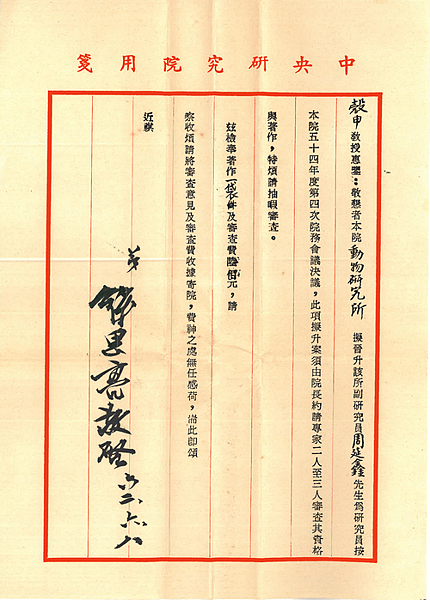 中央研究院用箋
穀申教授惠鑒：敬懇者本院動物研究所擬晉升該所副研究員周延鑫先生為研究員按
本院五十四年度第四次院務會議決議，此項擬升案須由院長約請專家二人至三人審查其資格
與著作，特煩請抽暇審查。
玆檢奉著作一袋件及審查費陸佰元，請
察收煩請將審查意見及審查費收據寄院，費神之處無任感荷，耑此即頌
近祺
弟
錢思亮敬啓 六二、六、八